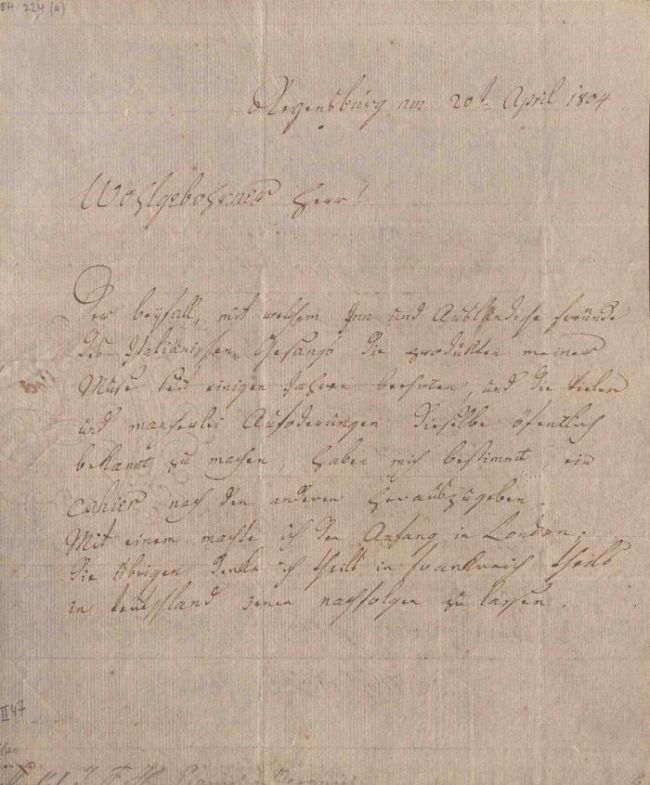 BH 224 (a)
Regensburg am 20t. April 1804
Wohlgebohrner Herr!
Der beyfall, mit welchem Inn und Ausländische freünde
des Italiänischen Gesangs die produkten meiner
Muse seit einigen Jahren beehrten, und die vielen
und mancherlei Auforderungen dieselbe öfentlich
bekannt zu machen, haben mich bestimmt, ein
Cahier nach den anderen herauszugeben.
Mit einem machte ich den Anfang in London.
die übrigen denke ich theils in frankreich theils
in teutschland jenen nachfolgen zu lassen.
II 47